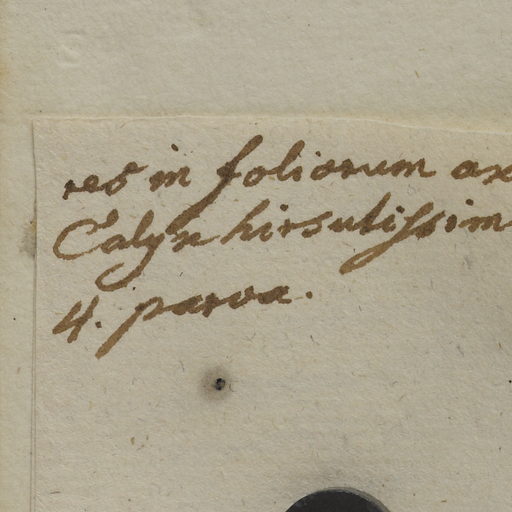 res in foliorum ax
Calyx hirsutissim
4. parva.